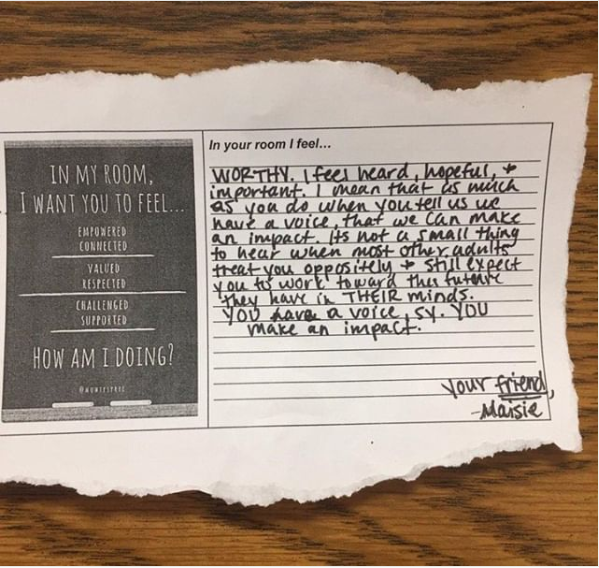 IN MY ROOM,
I WANT YOU TO FEEL...
EMPOWERED
CONNECTED
VALUED
RESPECTED
CHALLENGED
SUPPORTED
HOW AM I DOING?
In your room I feel...
WORTHY. I feel heard, hopeful, +
important. I mean that as much
as you do when you tell us we
have a voice, that we can make
an impact. Its not a small thing
to hear when most other adults
treat you oppositely + still expect
you to work toward this future
they have in THEIR minds.
YOU have a voice, sy. YOU
make an impact.
Your friend,
-Maisie